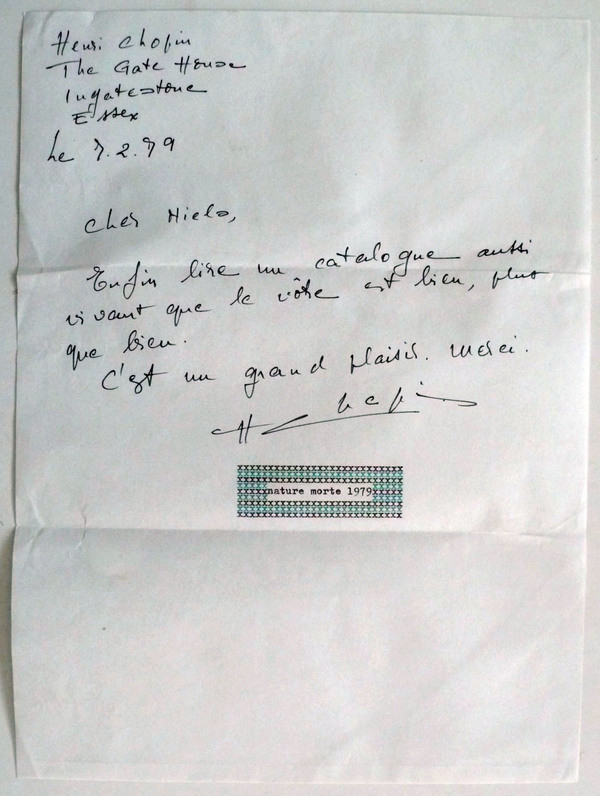 Henri Chopin
The Gate House
Ingatestone
Essex
Le 7.2.79
Cher Niels,
Enfin lire un catalogue aussi
vivant que le vôtre est bien, plus
que bien.
C'est un grand plaisir. Merci.
H Chopin
nature morte 1979